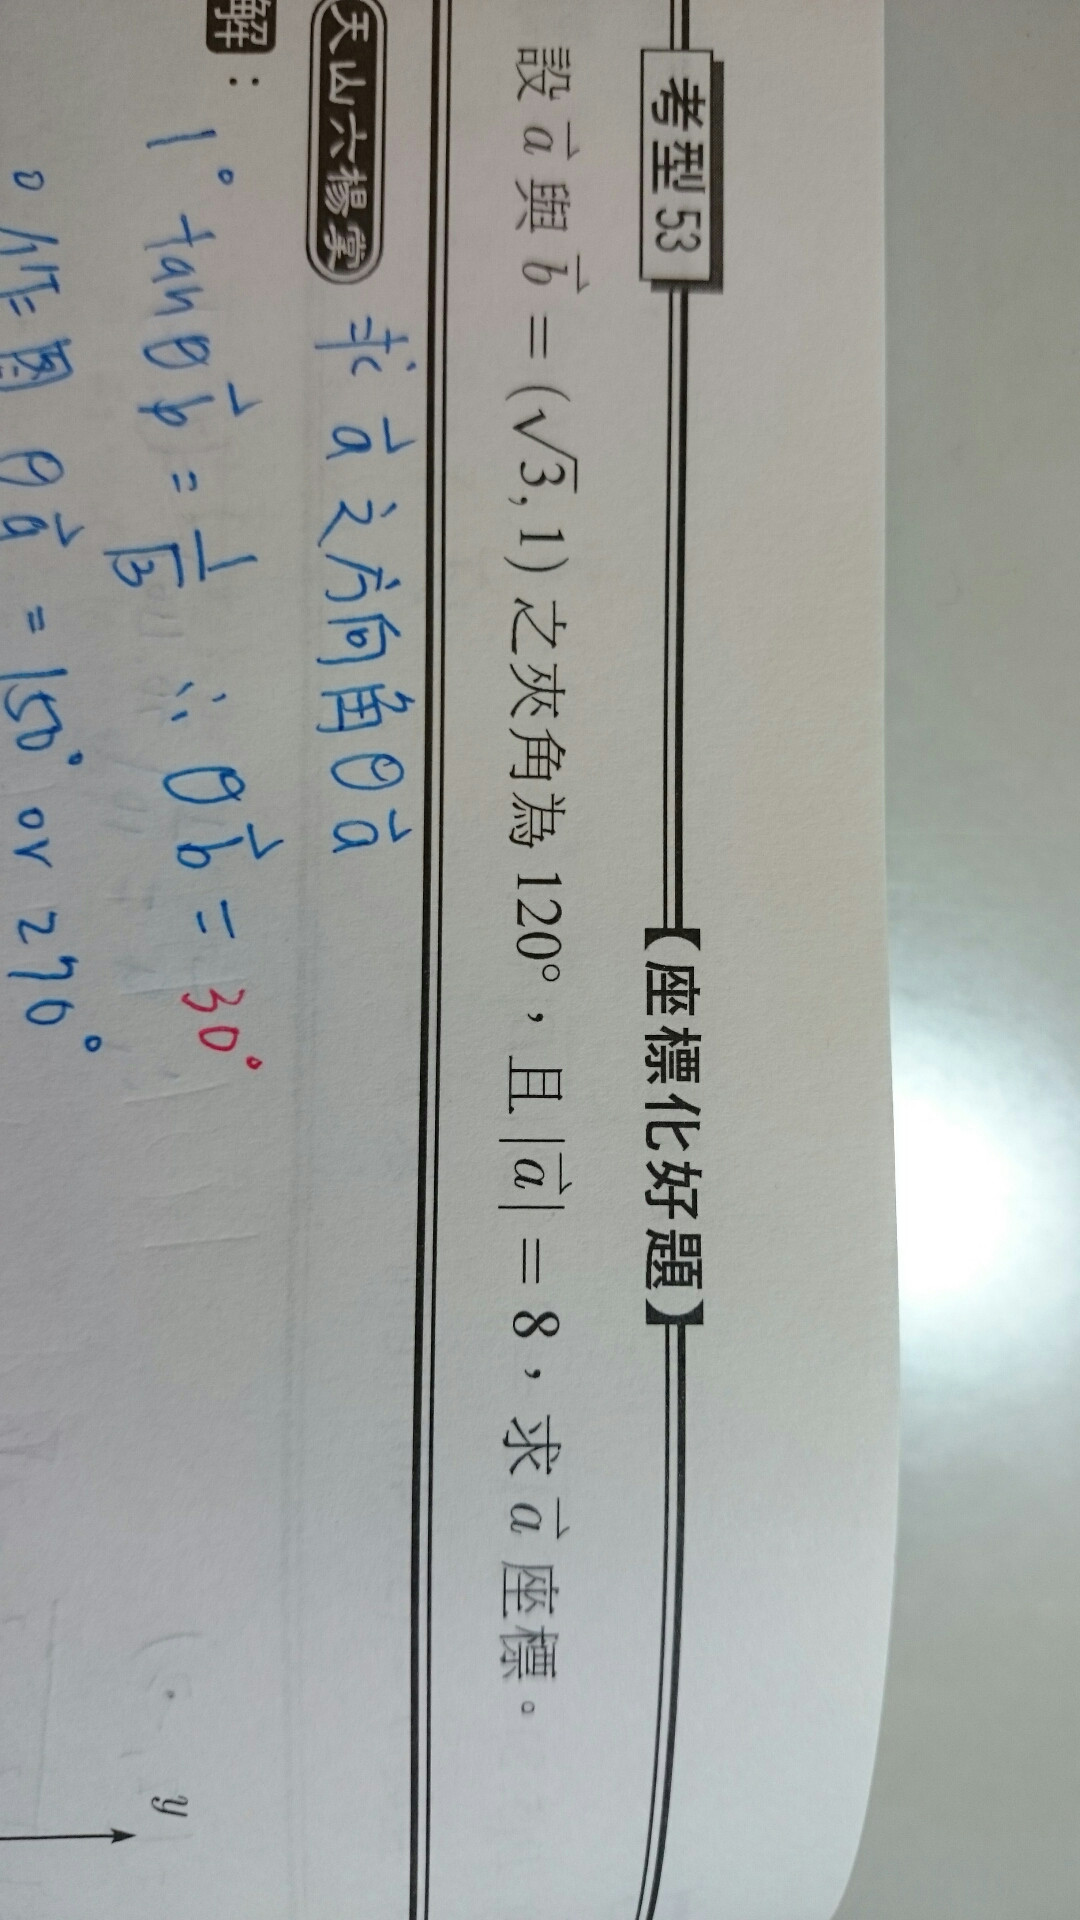 考型53
【座標化好題】
設 a⃗ 與 b⃗ = (√3, 1) 之夾角為 120°，且 |a⃗| = 8，求 a⃗ 座標。
天山六楊掌 求 a⃗ 之方向角 θa⃗
解：
1° tanθb⃗ = 1/√3 ∴ θb⃗ = 30°
作圖 θa⃗ = 150° or 270°
y